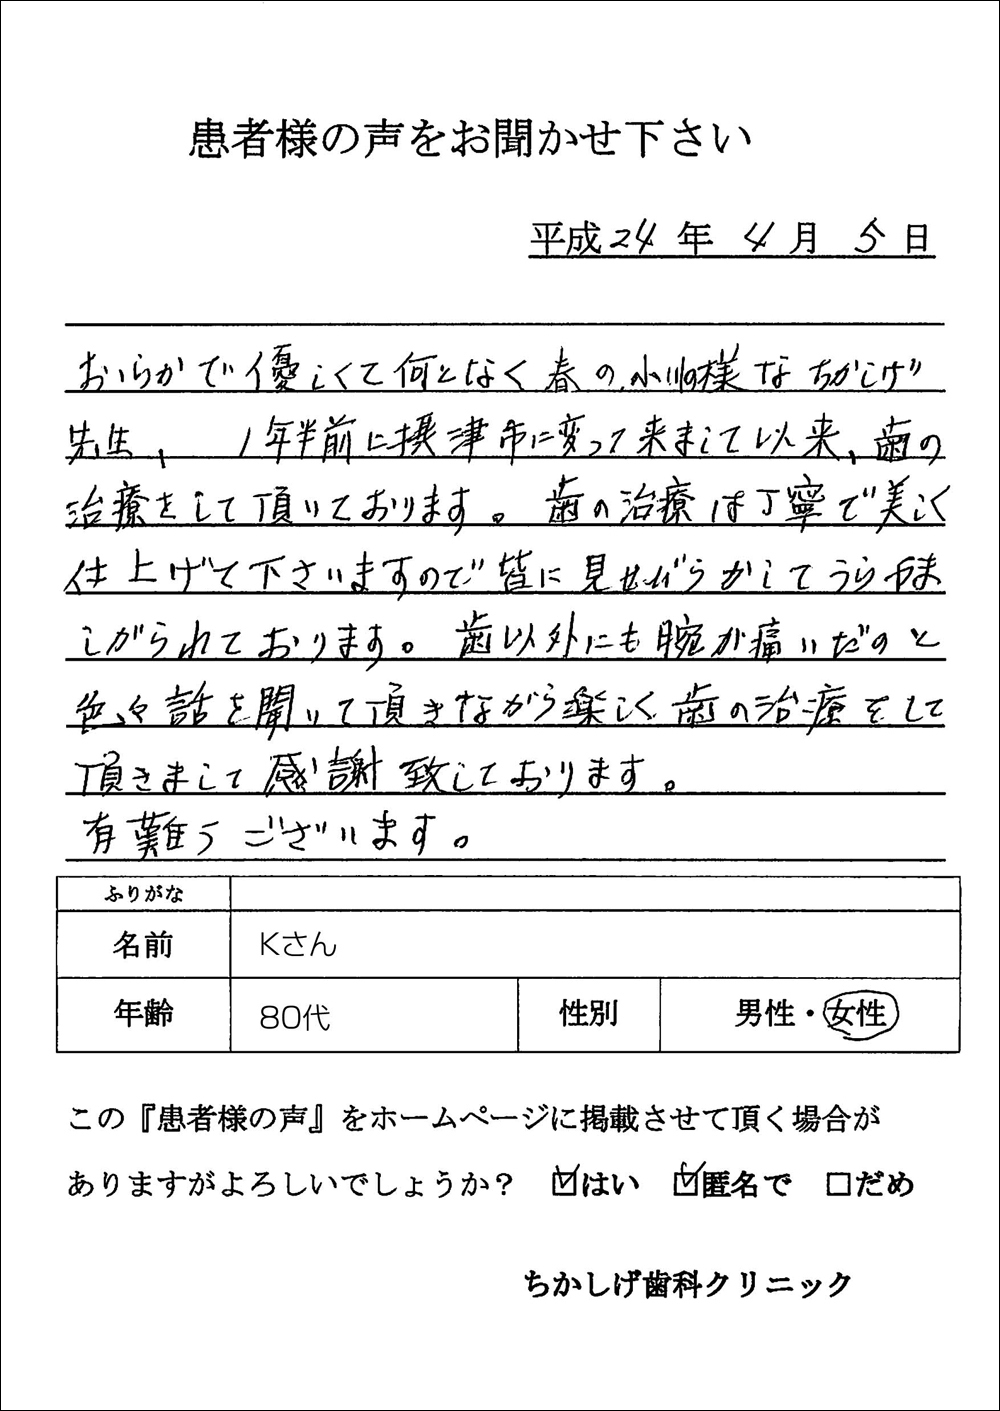 患者様の声をお聞かせ下さい
平成24年4月5日
おゝらかで優しくて何となく春の小川の様なちかしげ
先生、1年半前に摂津市に変って来まして以来、歯の
治療をして頂いております。歯の治療は丁寧で美しく
仕上げて下さいますので皆に見せびらかしてうらやま
しがられております。歯以外にも腕が痛いだのと
色々話を聞いて頂きながら楽しく歯の治療をして
頂きまして感謝致しております。
有難うございます。
ふりがな
名前 Kさん
年齢 80代 性別 男性・女性
この『患者様の声』をホームページに掲載させて頂く場合が
ありますがよろしいでしょうか? ☑はい ☑匿名で □だめ
ちかしげ歯科クリニック